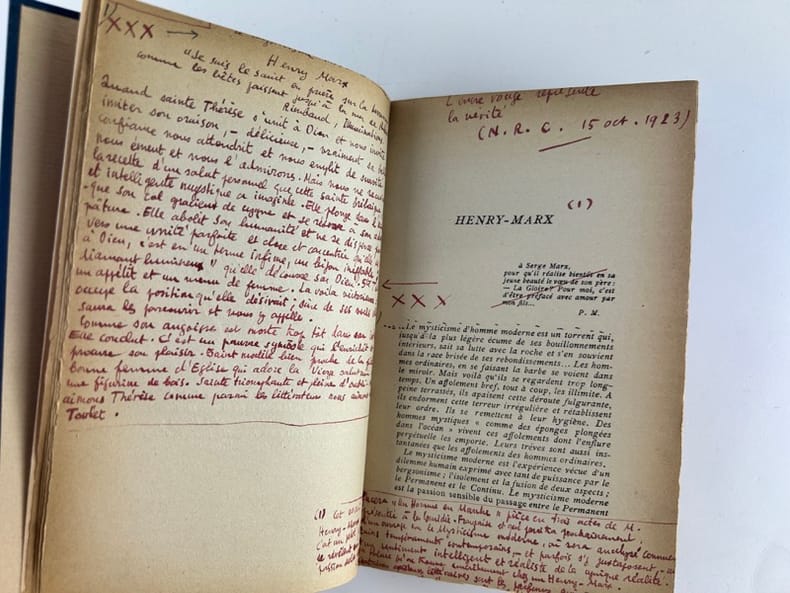 1)
XXX →
Henry Marx
"Je suis le saint en prière sur la
comme les bêtes paissent jusqu'à la mer de
Rimbaud, Illuminations
Quand sainte Thérèse s'unit à Dieu et nous
inviter son oraison, – délicieuse, – vraiment
confiance nous attendrit et nous emplit de suavité
nous émeut et nous l'admirons. Mais nous ne
la recette d'un salut personnel que cette sainte
et intelligente mystique a imaginée. Elle plonge dans
que son col gracieux de cygne et se
pâture. Elle abolit son humanité et ne se
vers une unité parfaite et close et concentrée
à Dieu, c'est en un terme infime, un bijou ineffable
diamant lumineux" qu'elle découvre son Dieu.
un appétit et un menu de femme. La voilà
occupe la position qu'elle désirait; sûre de ses
saura les parcourir et nous y appelle.
Comme son angoisse est morte trop tôt dans
Elle conclut. C'est un pauvre symbole qui
procure son plaisir. Saint modèle bien proche de la
bonne femme d'Eglise qui adore la Vierge
une figurine de bois. Sainte triomphante et pleine
aimons Thérèse comme parmi les littérateurs nous aimons
Toulet.
(1) Cet
Henry-Marx
L'encre rouge représente
la vérité
(N.R.C. 15 oct. 1923)
HENRY-MARX (1)
à Serge Marx,
pour qu'il réalise bientôt en sa
jeune beauté le vœu de son père :
— La Gloire? Pour moi, c'est
d'être préfacé avec amour par
mon fils...
P. M.
←
XXX
Le mysticisme d'homme moderne est un torrent qui,
jusqu'à la plus légère écume de ses bouillonnements
intérieurs, sait sa lutte avec la roche et s'en souvient
dans la race brisée de ses rebondissements... Les hom-
mes ordinaires, en se faisant la barbe se voient dans
le miroir. Mais voilà qu'ils se regardent trop long-
temps. Un affolement bref, tout à coup, les illimite. A
peine terrassés, ils apaisent cette déroute fulgurante,
ils endorment cette terreur irregulière et rétablissent
leur ordre. Ils se remettent à leur hygiène. Des
hommes mystiques « comme des éponges plongées
dans l'océan » vivent ces affolements dont l'enflure
perpétuelle les emporte. Leurs trêves sont aussi ins-
tantanées que les affolements des hommes ordinaires.
Le mysticisme moderne est l'expérience vécue d'un
dilemme humain exprimé avec tant de puissance par le
bergsonisme ; l'isolement et la fusion de deux aspects ;
le Permanent et le Continu. Le mysticisme moderne
est la passion sensible du passage entre le Permanent
"Un Homme en Marche" pièce en trois actes de M.
présentée à la Comédie-Française et qui paraîtra prochainement;
d'un ouvrage sur le Mysticisme moderne, où sera analysé comment
tempéraments contemporains, – et parfois s'y juxtaposent,
sentiment intelligent et réaliste de la unique réalité.
chez un Henry-Marx.
littéraires sont les